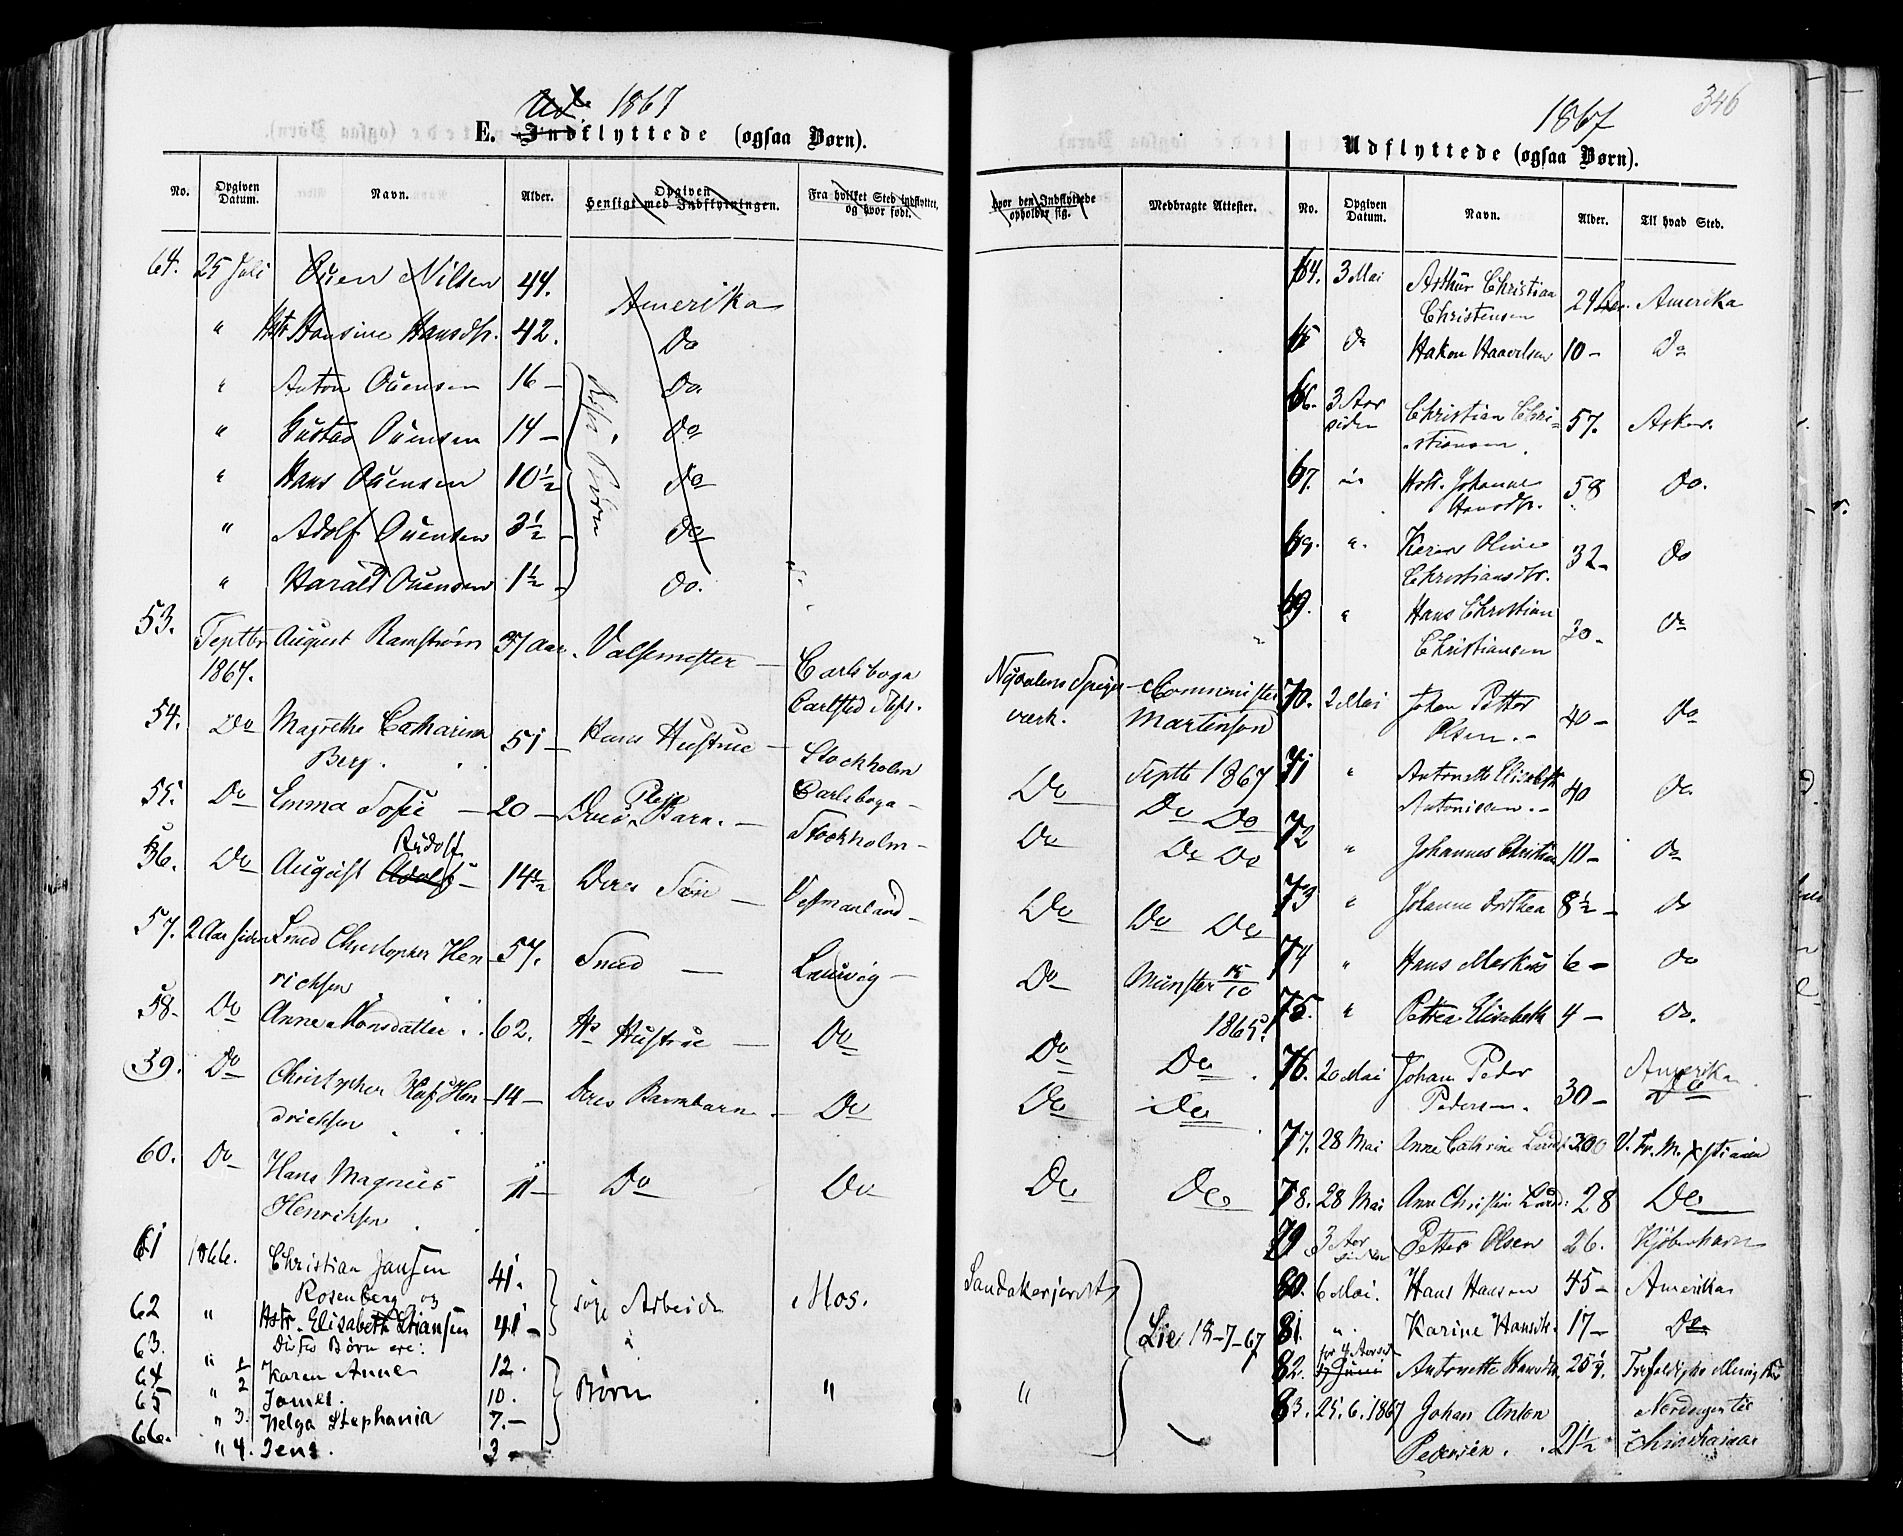 Ud. 1867
E. Indflyttede (ogsaa Børn).
No.
Opgiven Datum.
Navn.
Alder.
Opgiven Hensigt med Indflytningen.
Fra hvilket Sted indflyttet, og hvor født.
64. 25 Juli Ouen Nilsen 44. Amerika
" Hstr Hansine Hansdtr. 42. Do
" Anton Ouensen 16 – Do.
" Gustav Ouensen 14 – Do
" Hans Ouensen 10½ Do
" Adolf Ouensen 3½ – Do
" Harald Ouensen 1½ – Do.
Børn
53. Septbr 1867. August Ramstrøm 37 Aar. Valsemester – Carlsboga Carlsted
54. Do Magrethe Catharina Berg. 51 – Hans Hustrue – Stockholm
55. Do Emma Sofie – 20 – Deres Pleje Barn. – Carlsboga – Stockholm –
56. Do August Adolf Rudolf – 14½ Deres Søn – Vestmanland –
57. 2 Aar siden Smed Christopher Henrichsen 57. Smed – Laurvig –
58 – Do Anne Monsdatter 62. Hs Hustrue – Do
59. Do Christopher Hendrichsen 14 – Deres Barnebarn – Do
60. Do Hans Magnus Henriksen 11 – Do Do
61 1866. Christian Jansen Rosenberg og 41. søge Arbeide Mos.
62 " Hstr. Elisabeth Stiansen 41 –
63. Disses Børn ere:
64 " 1/2 Karen Anne 12. Børn "
65 " James. 10.
" 3. Helga Stephania 7. –
66. " 4. Jens. 3 –
346
1867
Udflyttede (ogsaa Børn).
hvor den Indflyttede opholder sig.
Medbragte Attester.
No.
Opgiven Datum.
Navn.
Alder.
Til hvad Sted.
64. 3 Mai Arthur Christian Christensen 24 Amerika
65 Do Hakon Haavelsen 10 – Do
66. 3 Aar siden Christian Christiansen. 57. Asker.
67. Hstr. Johanne Hansdtr. 58 Do.
69. " Karen Oline Christiansdtr. 32 – Do
69. " Hans Christian Christiansen 20 – Do
Nydalens Spigerværk. Comminister Martinson
70. 2 Mai Johan Petter Olsen. – 40 – Do
Do Septb 1867
71 " Antonette Elisabeth Antonissen. – 40 Do.
Do Do Do
72 " Johannes Christian 10 – Do
Do Do
73 " Johanne Dorthea 8½ – Do
Do Do Do
74 " Hans Markus 6 – Do
Do Munster 15/10 1865.
75. " Petrea Elisabeth 4 – Do.
Do Do.
76. 20 Mai Johan Peder Pedersen. 30 – Amerika Do
Do Do
77. 28 Mai Anne Cathrine Lund: 30 V. Fr. M. Xstiania
Do Do
78. 28 Mai Ann Christine Lund: 28 Do
79 3 Aar siden Petter Olsen 26. Kjøbenhavn
Sandakerjordet
80. 6 Mai. Hans Hansen 45 – Amerika
Lie 18–7–67
81. " Karine Hansdtr. 17 – Do
82. for 4 Aar siden Juni Antonette Hansdtr. 25¼. Trefoldighs Menighed
"
83. 25.6.1867 Johan Anton Pedersen. 21½ Christiania